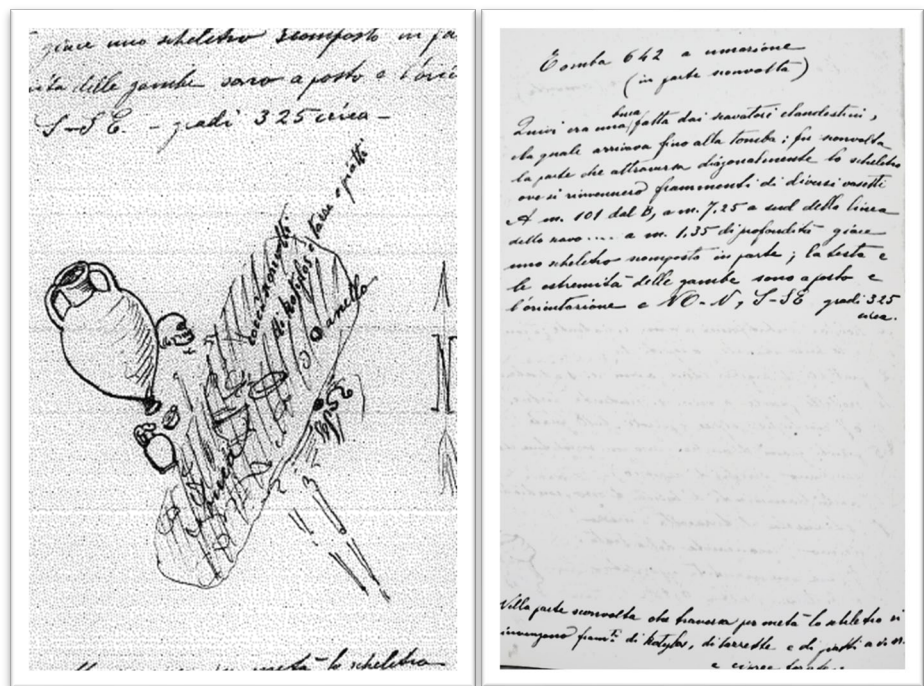 giace uno scheletro scomposto in pa
ità delle gambe sono a posto e l'orie
S-SE. - gradi 325 circa -
di kotylos, tazze e piatti
anello
metà lo scheletro
Tomba 642 a umazione
(in parte sconvolta)
Quivi era una buca fatta dai scavatori clandestini,
la quale arrivava fino alla tomba; fu sconvolta
la parte che attraversa diagonalmente lo scheletro
ove si rinvennero frammenti di diversi vasetti
A m. 101 dal B, a m. 7.25 a sud della linea
dello scavo.... a m. 1.35 di profondità giace
uno scheletro scomposto in parte; la testa e
le estremità delle gambe sono a posto e
l'orientazione e NO-N, S-SE gradi 325
circa.
Nella parte sconvolta che traversa per metà lo scheletro si
rinvengono framti di kotylos, di tazzette e di piatti